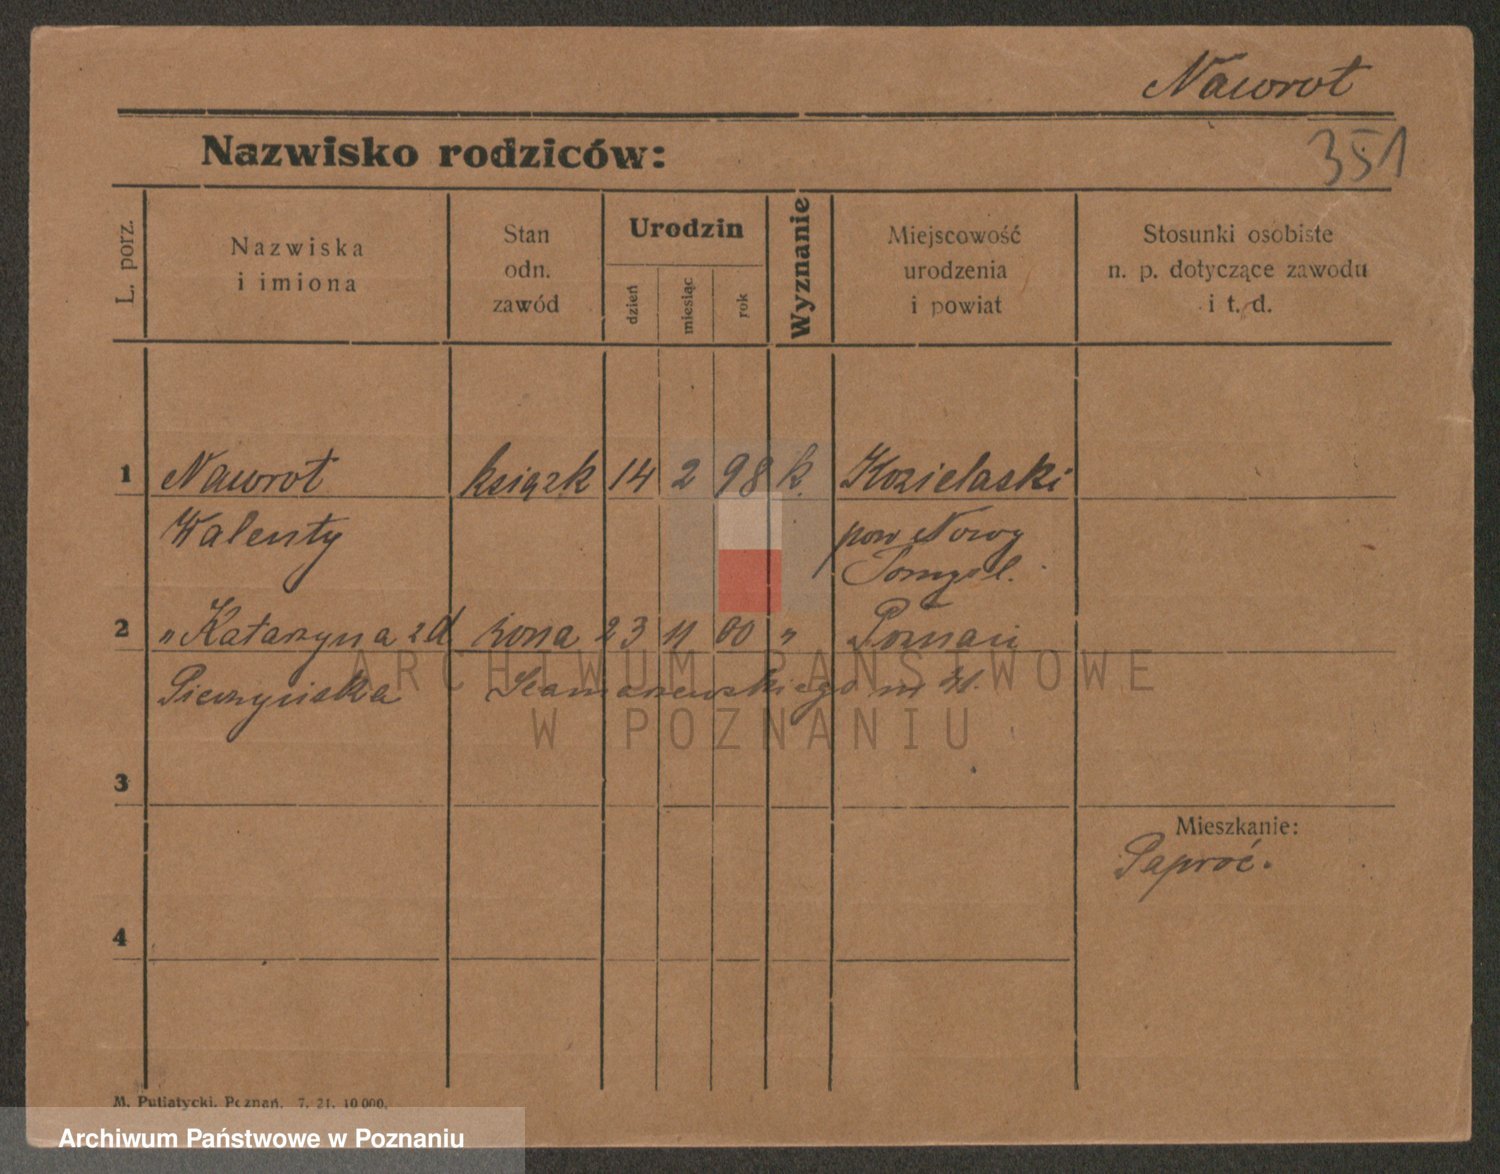 Nawrot
Nazwisko rodziców:
351
L. porz.
Nazwiska
i imiona
Stan
odn.
zawód
Urodzin
dzień
miesiąc
rok
Wyznanie
Miejscowość
urodzenia
i powiat
Stosunki osobiste
n. p. dotyczące zawodu
i t. d.
1 Nawrot książk 14 2 98 k. Kozielaski
Walenty pow Nowy
Tomyśl.
2 „ Katarzyna z d żona 23 11 00 „ Poznań
m
ARCHIWUM PAŃSTWOWE
W POZNANIU
3
Mieszkanie:
Paproć.
4
M. Putiatycki, Poznań, 7. 21. 10 000.
Archiwum Państwowe w Poznaniu